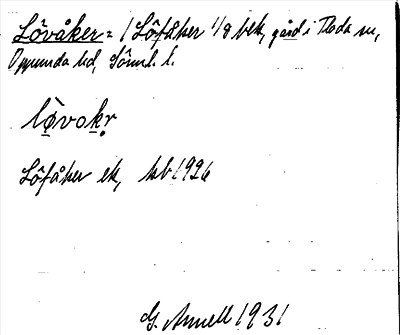 Lövåker = 1 Löfåker 1/8 bek, gård i Floda sn,
Oppunda hd, Söml. l.
lövokr
Löfåker ek, kb 1926
G. Annell 1931